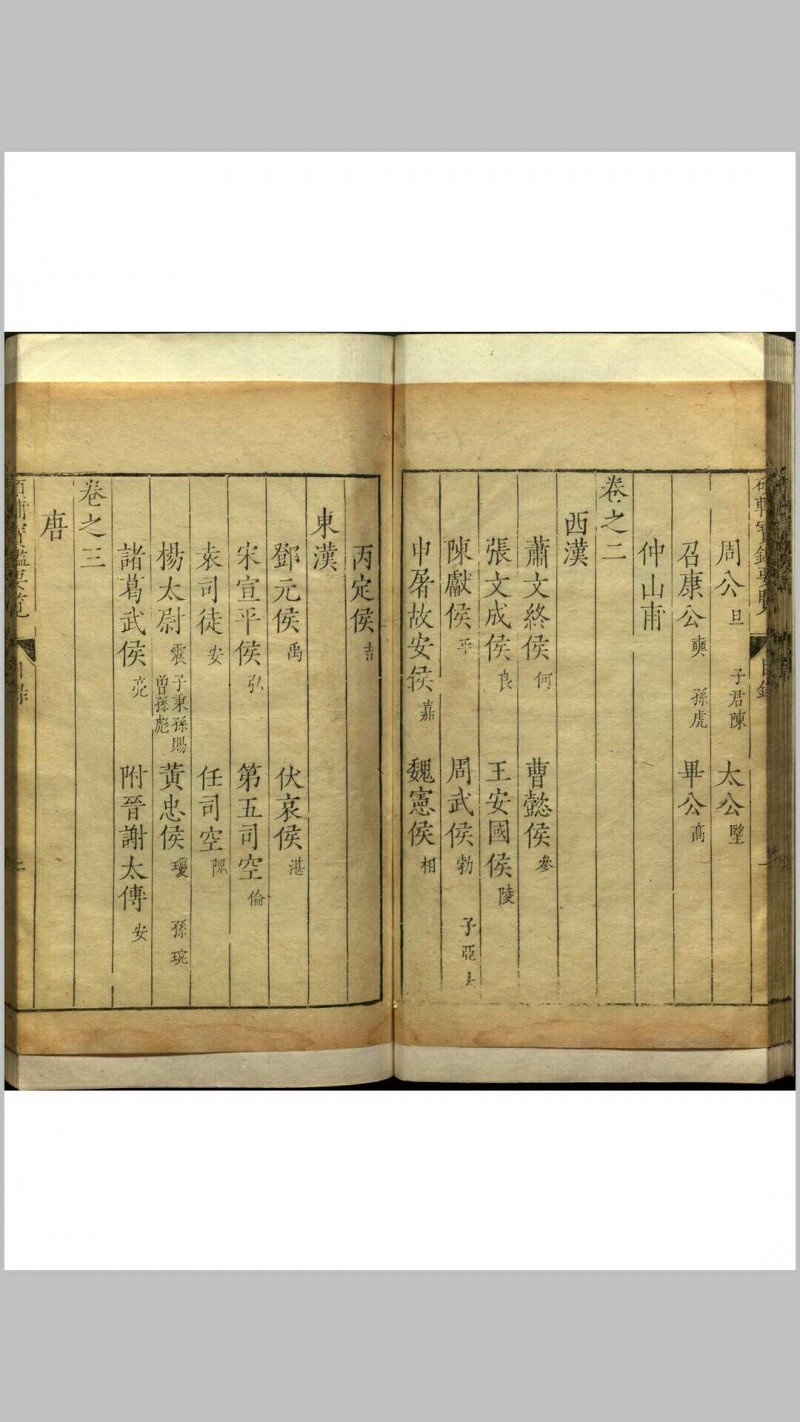 周公旦 子君陳 太公望
召康公奭 孫虎 畢公高
仲山甫
卷之二
西漢
蕭文終侯何 曹懿侯參
張文成侯良 王安國侯陵
陳獻侯平 周武侯勃 子亞夫
申屠故安侯嘉 魏憲侯相
丙定侯吉
東漢
鄧元侯禹 伏哀侯湛
宋宣平侯弘 第五司空倫
袁司徒安 任司空隗
楊太尉震 子秉孫賜曾孫彪 黃忠侯瓊 孫琬
諸葛武侯亮 附晉謝太傅安
卷之三
唐
目錄